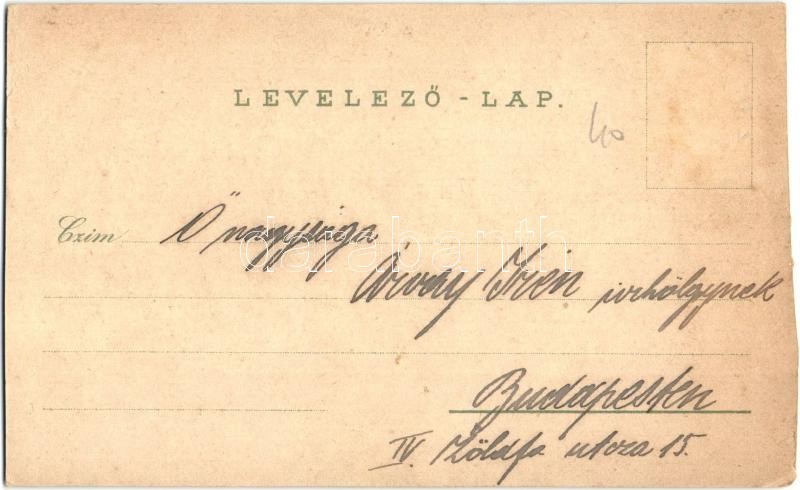 LEVELEZŐ - LAP.
40
Czim Ő nagysága
darabanth
Árvay Irén urhölgynek
Budapesten
IV. Zöldfa utcza 15.